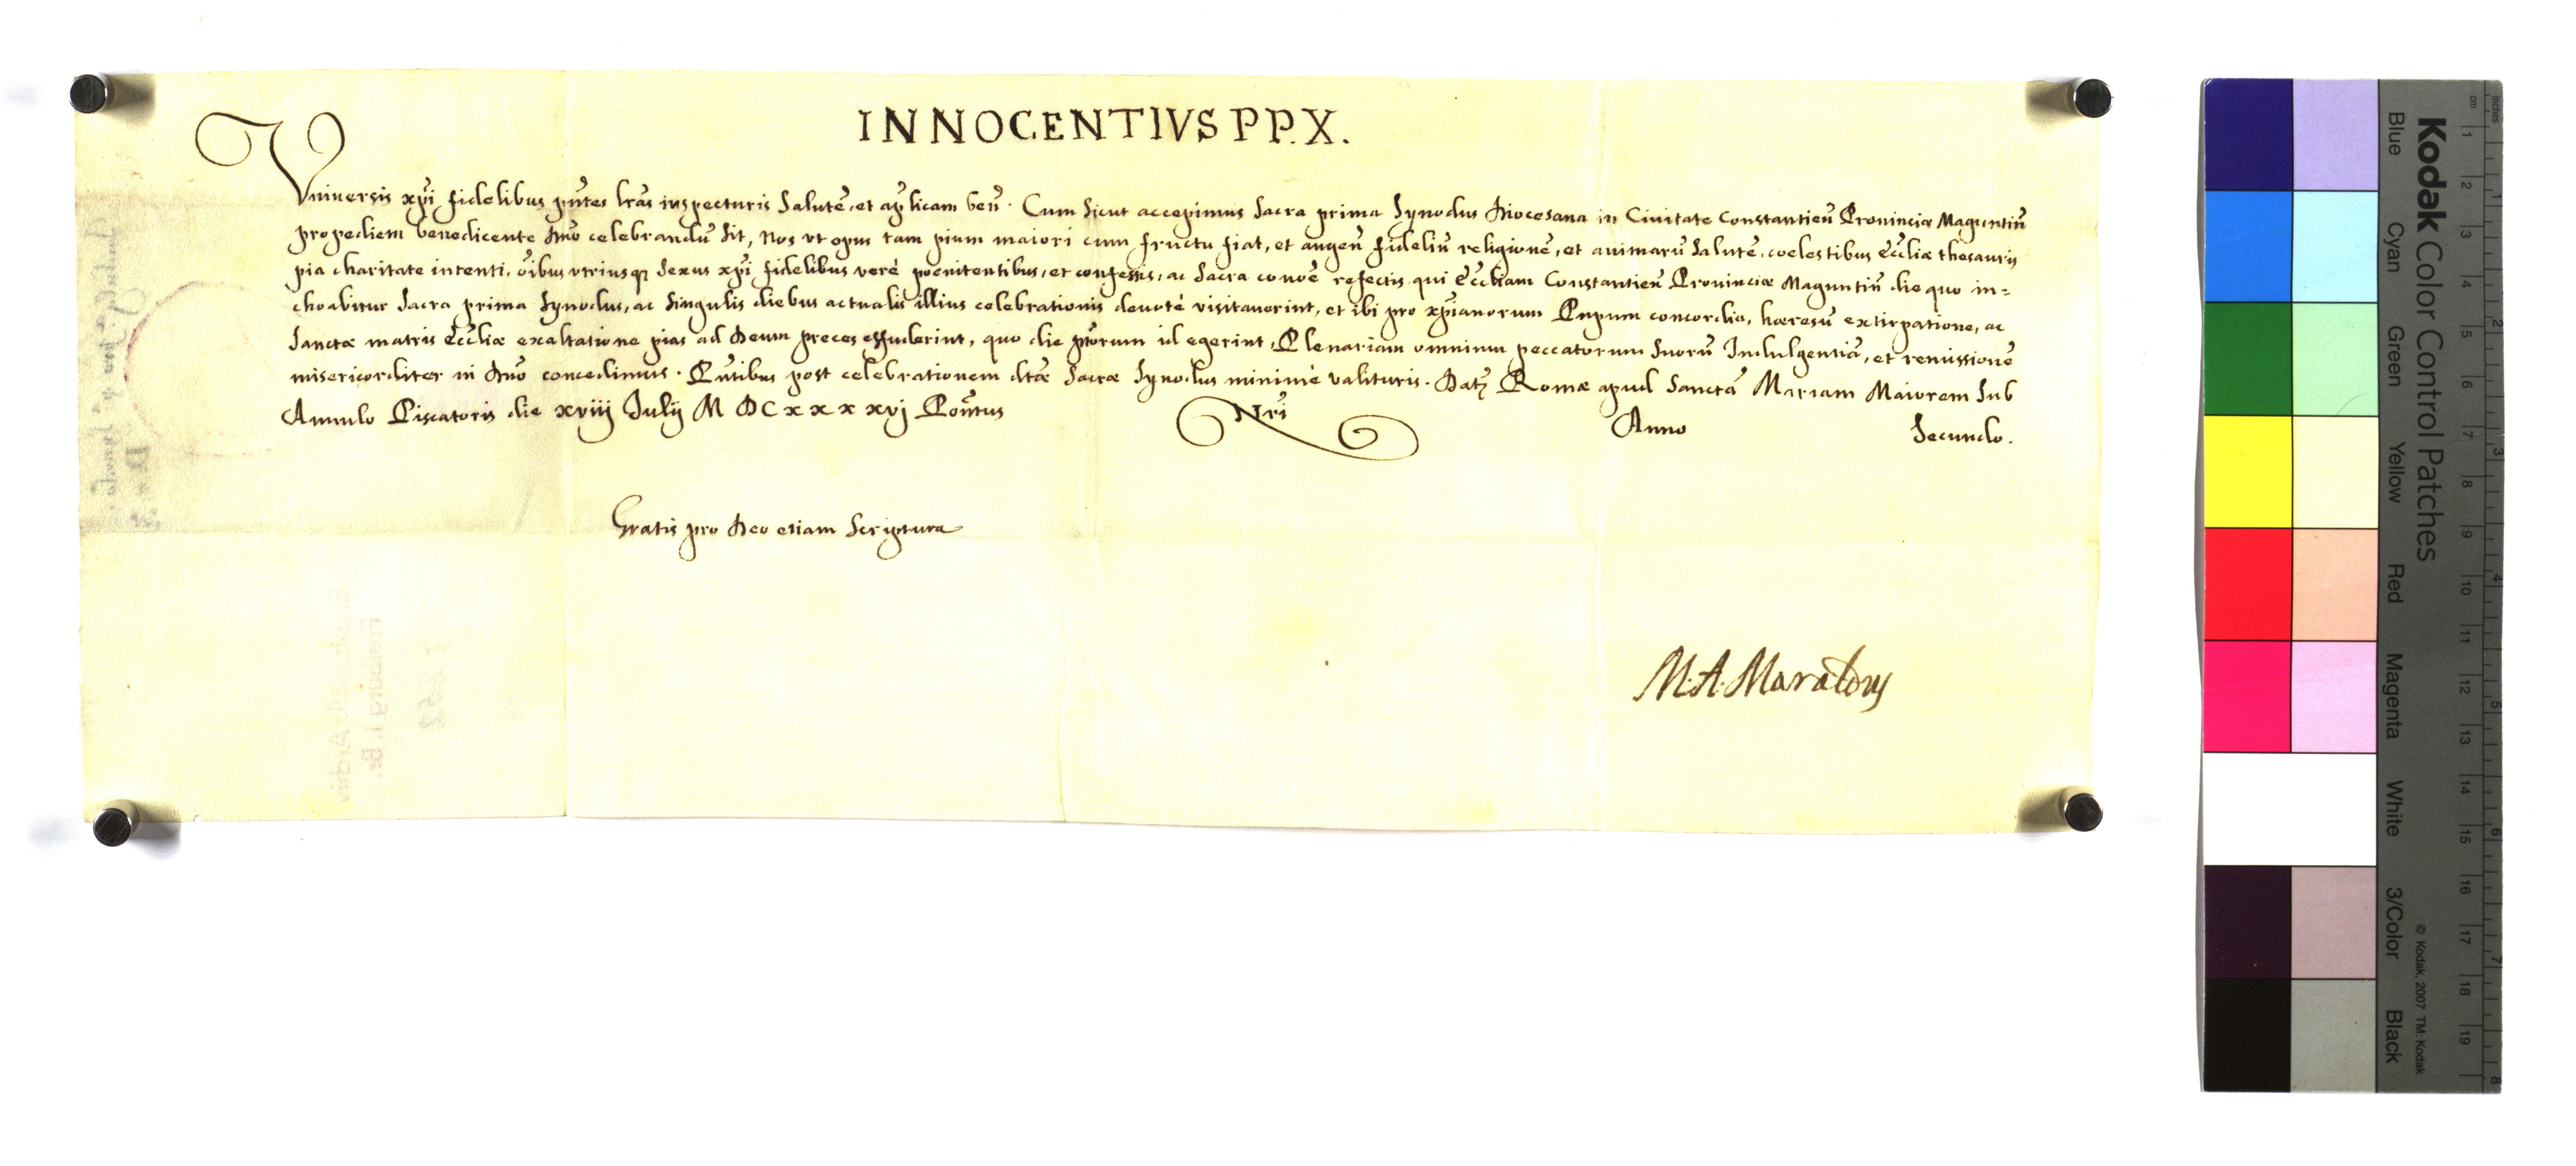 INNOCENTIVS PP. X.
Vniuersis xp̃i fidelibus pñtes lr̃as inspecturis Salutẽ, et ap̃licam beñ. Cum sicut accepimus sacra prima Synodus Diocesana in Ciuitate Constantieñ Prouinciæ Maguntiñ
propediem benedicente Dñõ celebrandũ sit, Nos vt opus tam pium maiori cum fructu fiat, et augeñ fideliũ religionẽ, et animarũ Salutẽ, coelestibus Ecc̃liæ thesauris
pia charitate intenti, õibus vtriusq; sexus xp̃i fidelibus verè poenitentibus, et confessis, ac sacra com̃õe refectis qui Ecc̃liam Constantieñ Prouinciæ Maguntiñ die quo in=
choabitur sacra prima Synodus, ac singulis diebus actualis illius celebrationis deuotè visitauerint, et ibi pro xp̃ianorum Pnpum concordia, hæresũ extirpatione, ac
Sanctæ matris Ecc̃liæ exaltatione pias ad Deum preces effuderint, quo die pr̃torum id egerint, Plenariam omnium peccatorum suorũ Indulgentiã, et remissionẽ
misericorditer in Dñõ concedimus. Pñtibus post celebrationem dtæ sacræ Synodus minimè valituris. Datz Romæ apud Sanctã Mariam Maiorem sub
Annulo Piscatoris die xviij Julij M DC x x x xvj Pontũs Nr̃i Anno Secundo.
Gratis pro Deo etiam Scriptura
M. A. Maraldus
Kodak Color Control Patches
Blue Cyan Green Yellow Red Magenta White 3/Color Black
© Kodak, 2007 TM: Kodak
inches 1 2 3 4 5 6 7 8
cm 1 2 3 4 5 6 7 8 9 10 11 12 13 14 15 16 17 18 19